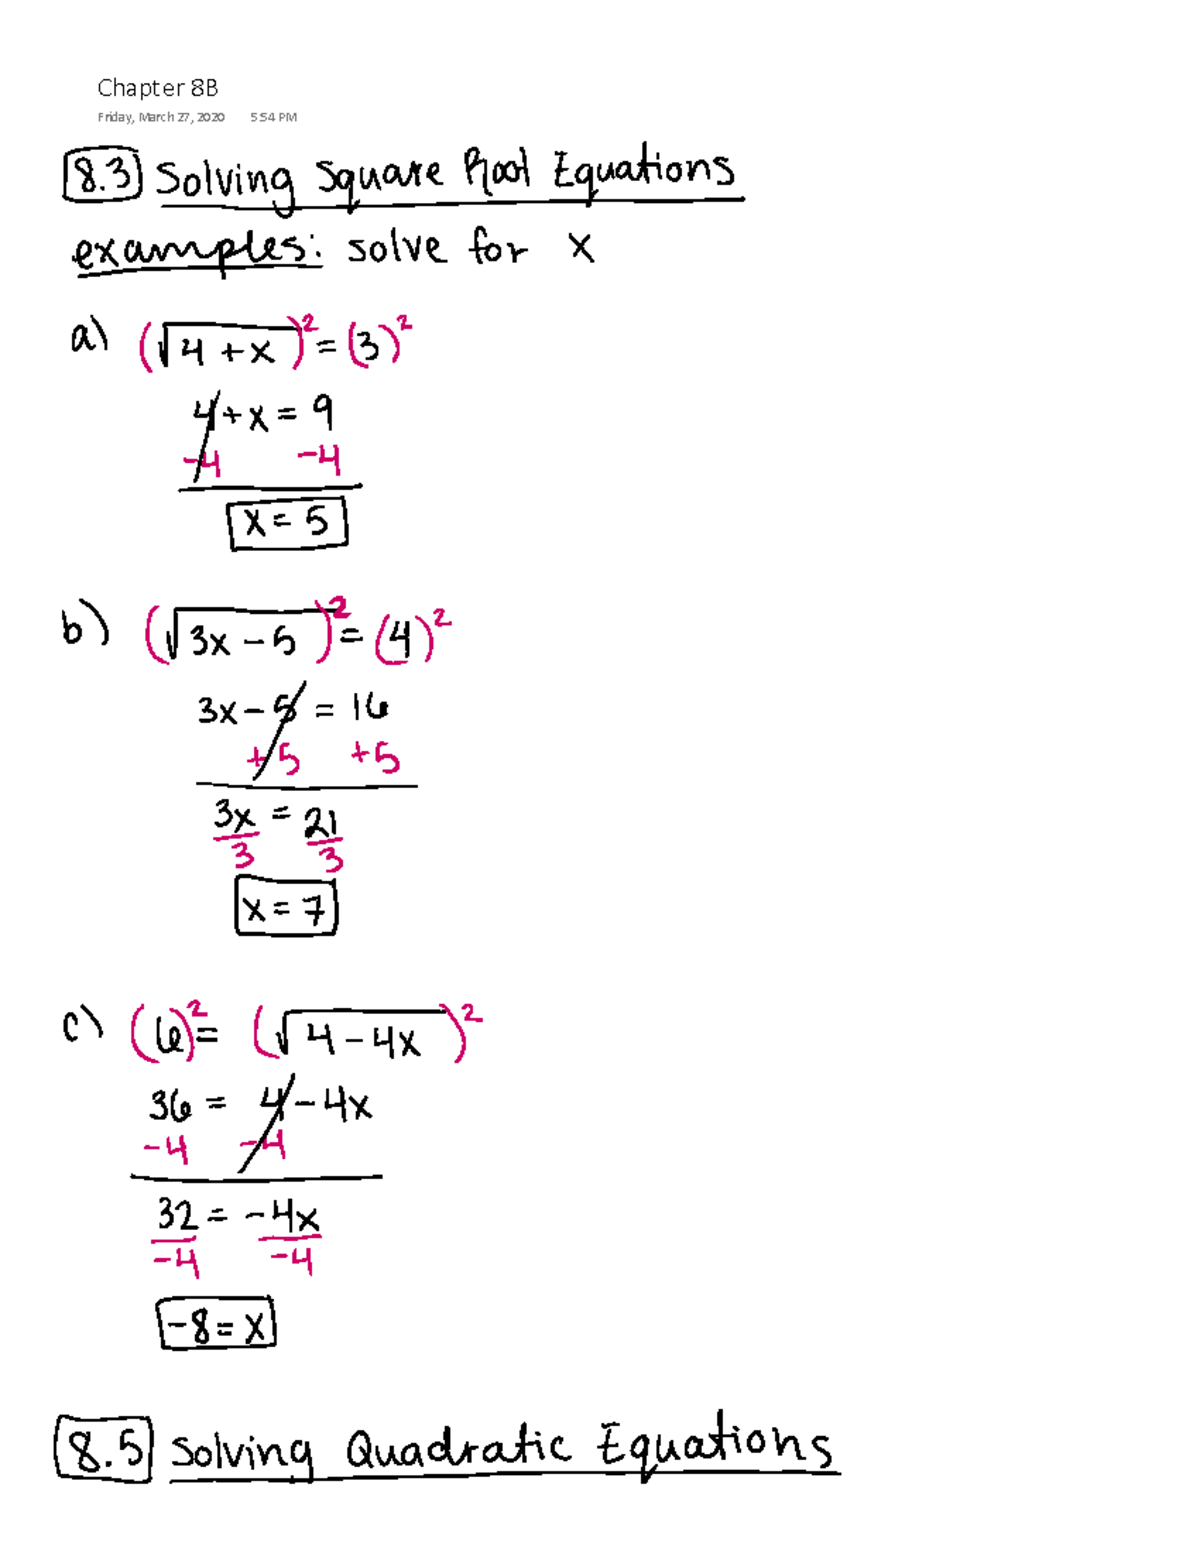 Chapter 8B
Friday, March 27, 2020 5:54 PM
8.3 Solving Square Root Equations
examples: solve for x
a) (√4 + x)² = (3)²
4 + x = 9
-4 -4
x = 5
b) (√3x - 5)² = (4)²
3x - 5 = 16
+5 +5
3x = 21
3 3
x = 7
c) (6)² = (√4 - 4x)²
36 = 4 - 4x
-4 -4
32 = -4x
-4 -4
-8 = x
8.5 Solving Quadratic Equations